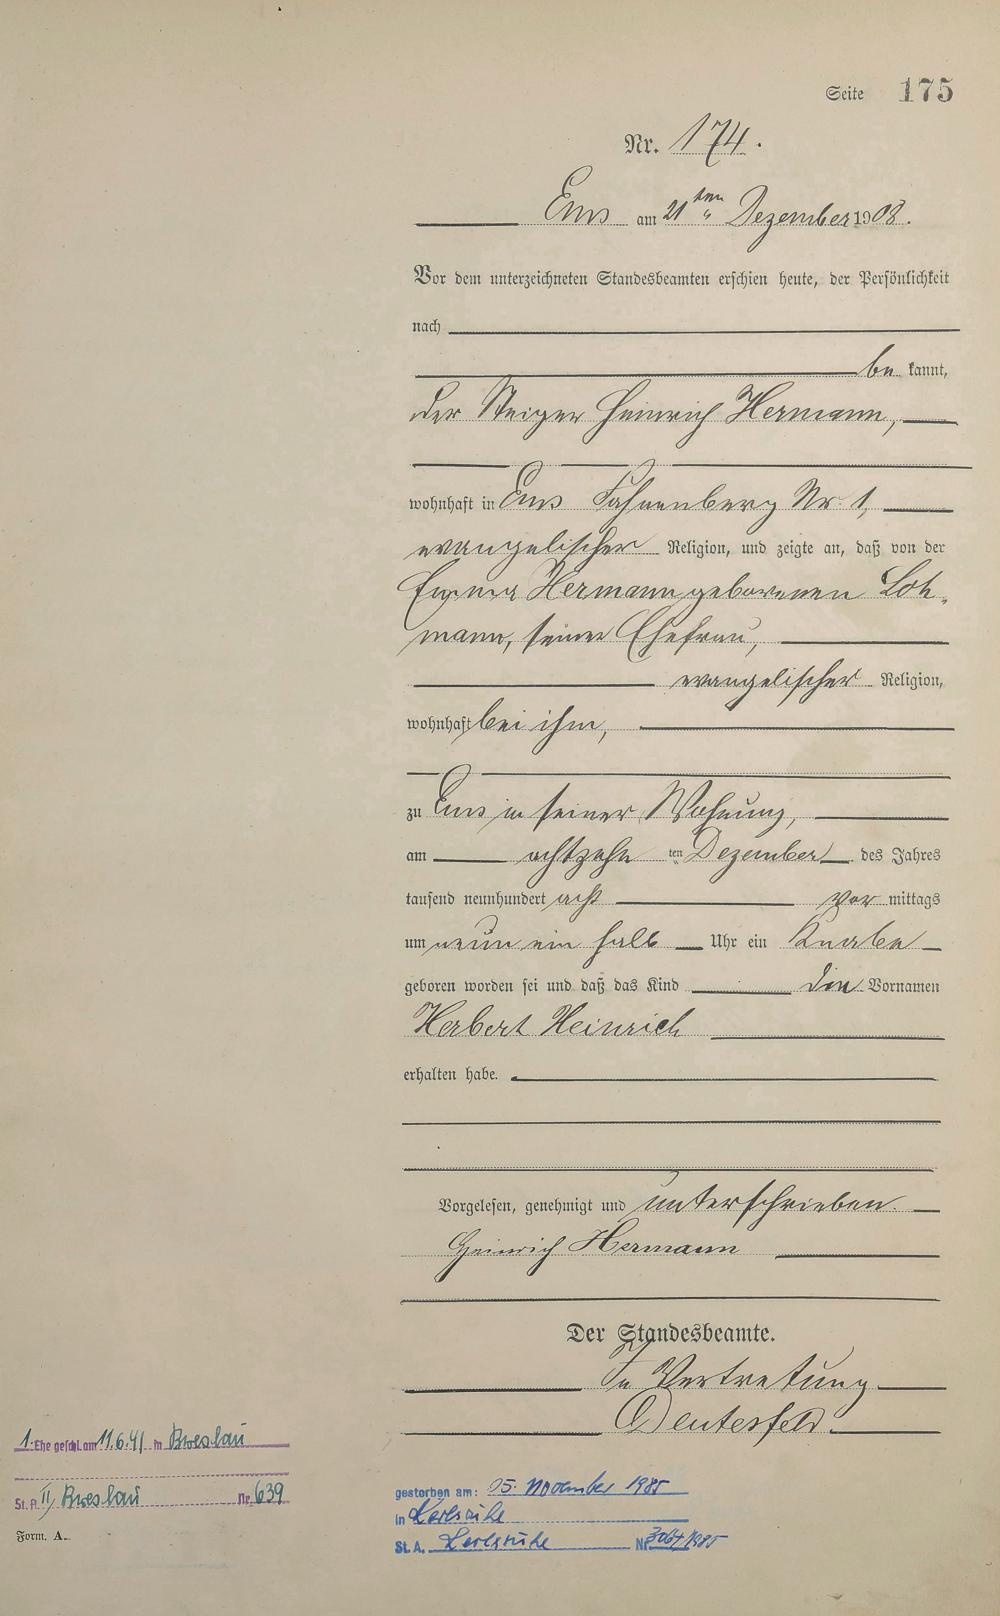 Seite 175
Nr. 174.
Ems am 21ten Dezember 1908.
Vor dem unterzeichneten Standesbeamten erschien heute, der Persönlichkeit
nach
be kannt,
der Steiger Heinrich Hermann,
wohnhaft in Ems Fahnenberg Nr. 1,
evangelischer Religion, und zeigte an, daß von der
Emma Hermann geborenen Loh-
mann, seiner Ehefrau,
evangelischer Religion,
wohnhaft bei ihm,
zu Ems in seiner Wohnung,
am achtzehn ten Dezember des Jahres
tausend neunhundert acht vor mittags
um neun ein halb Uhr ein Knabe
geboren worden sei und daß das Kind die Vornamen
Herbert Heinrich
erhalten habe.
Vorgelesen, genehmigt und unterschrieben.
Heinrich Hermann
Der Standesbeamte.
In Vertretung
1. Ehe geschl. am 11.6.41 in Breslau
St. A. II, Breslau Nr. 639
Form. A.
gestorben am: 05. November 1985
in Karlsruhe
St. A. Karlsruhe Nr. /1985